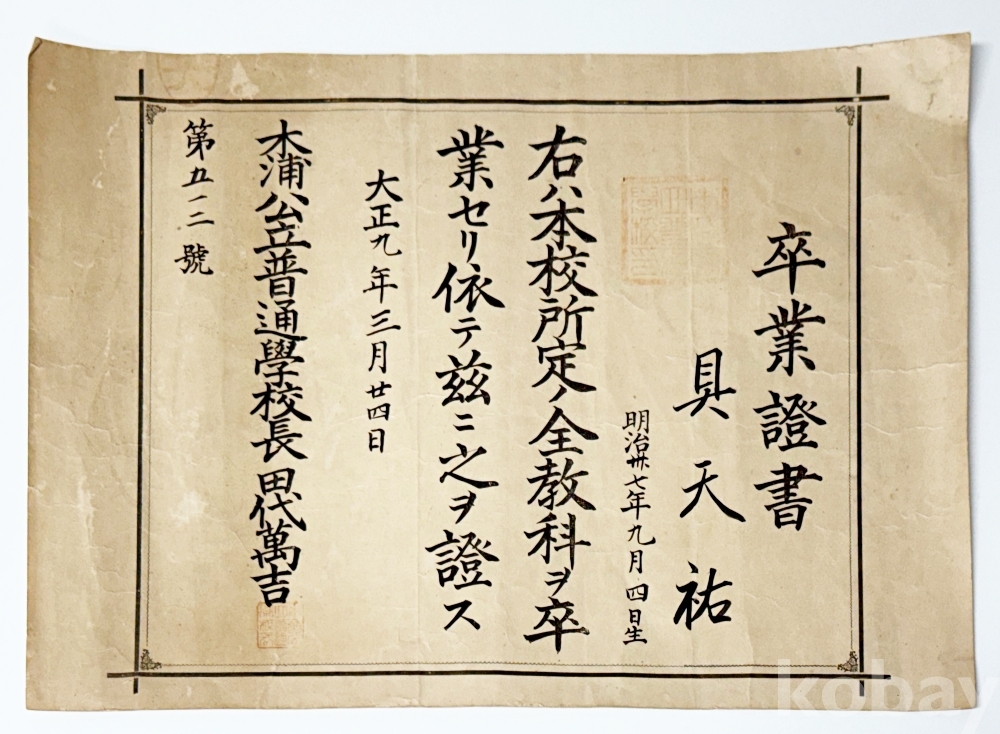 卒業證書
具天祐
明治卅七年九月四日生
右ハ本校所定ノ全教科ヲ卒
業セリ依テ茲ニ之ヲ證ス
大正九年三月廿四日
木浦公立普通學校長田代萬吉
第五一二號
kobay